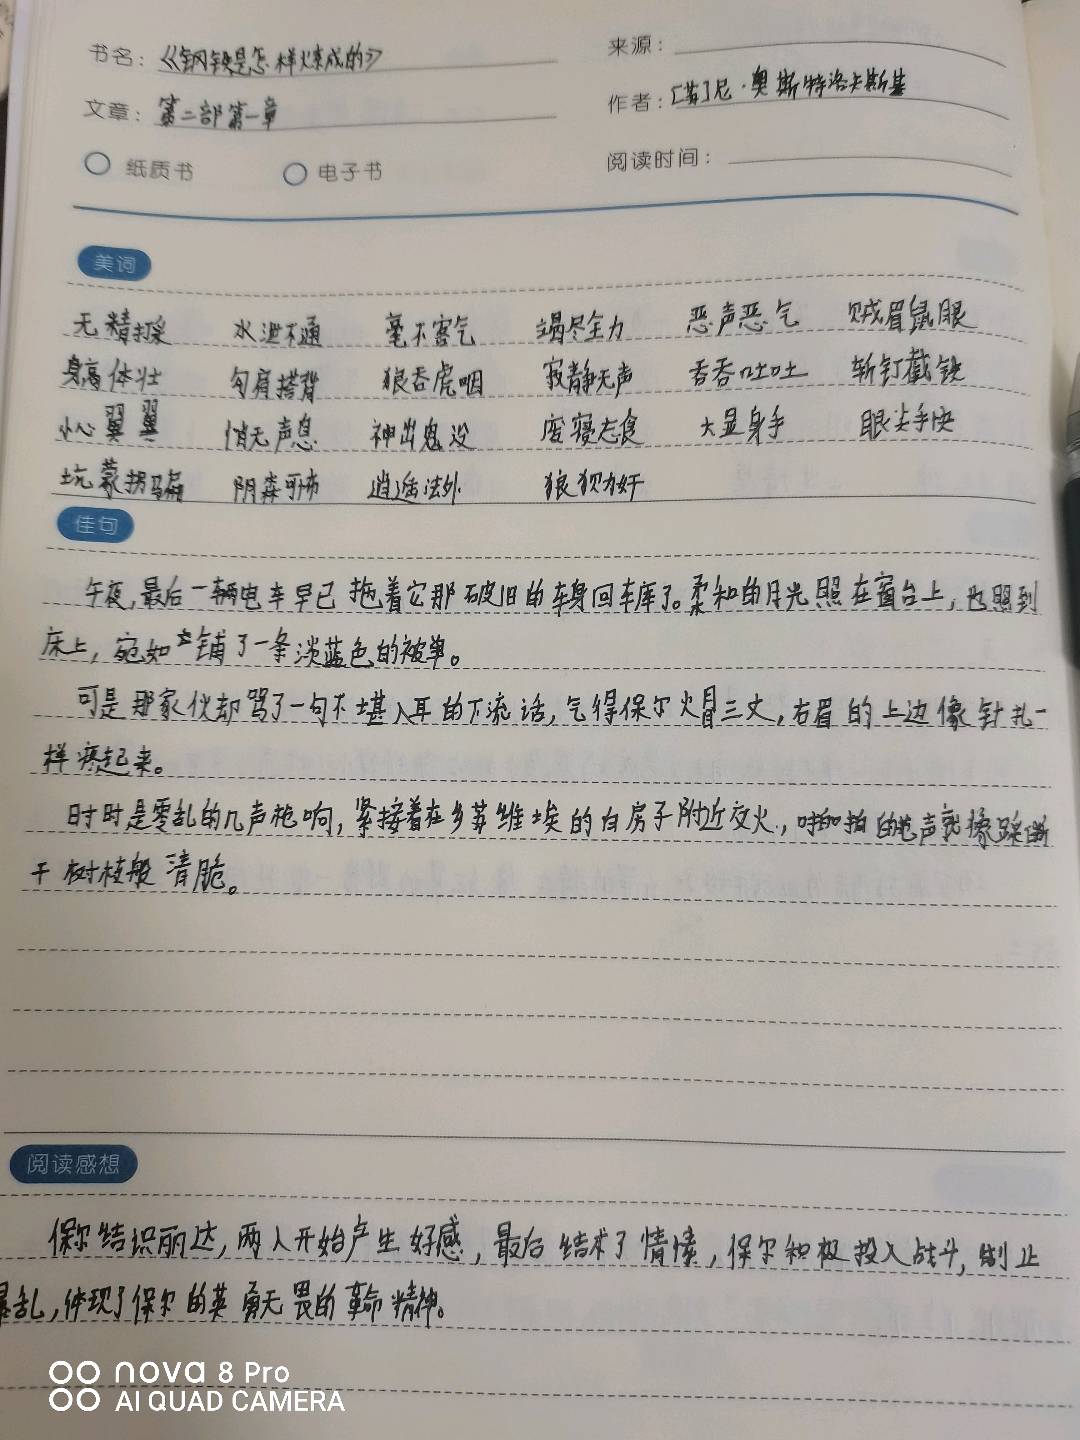 书名：《钢铁是怎样炼成的》
来源：
文章：第二部第一章
作者：[苏]尼·奥斯特洛卡斯基
纸质书 电子书
阅读时间：
美词
无精打采 水泄不通 毫不客气 竭尽全力 恶声恶气 贼眉鼠眼
身高体壮 勾肩搭背 狼吞虎咽 寂静无声 吞吞吐吐 斩钉截铁
小心翼翼 悄无声息 神出鬼没 废寝忘食 大显身手 眼尖手快
坑蒙拐骗 阴森可怖 逍遥法外 狼狈为奸
佳句
午夜，最后一辆电车早已拖着它那破旧的车身回车库了。柔和的月光照在窗台上，也照到
床上，宛如铺了一条淡蓝色的被单。
可是那家伙却骂了一句不堪入耳的下流话，气得保尔火冒三丈，右眉的上边像针扎一
样疼起来。
时时是零乱的几声枪响，紧接着在乡苏维埃的白房子附近交火，啪啪的枪声就像踩断
干树枝般清脆。
阅读感想
保尔结识丽达，两人开始产生好感，最后结束了情愫，保尔积极投入战斗，制止
暴乱，体现了保尔的英勇无畏的革命精神。
nova 8 Pro
AI QUAD CAMERA